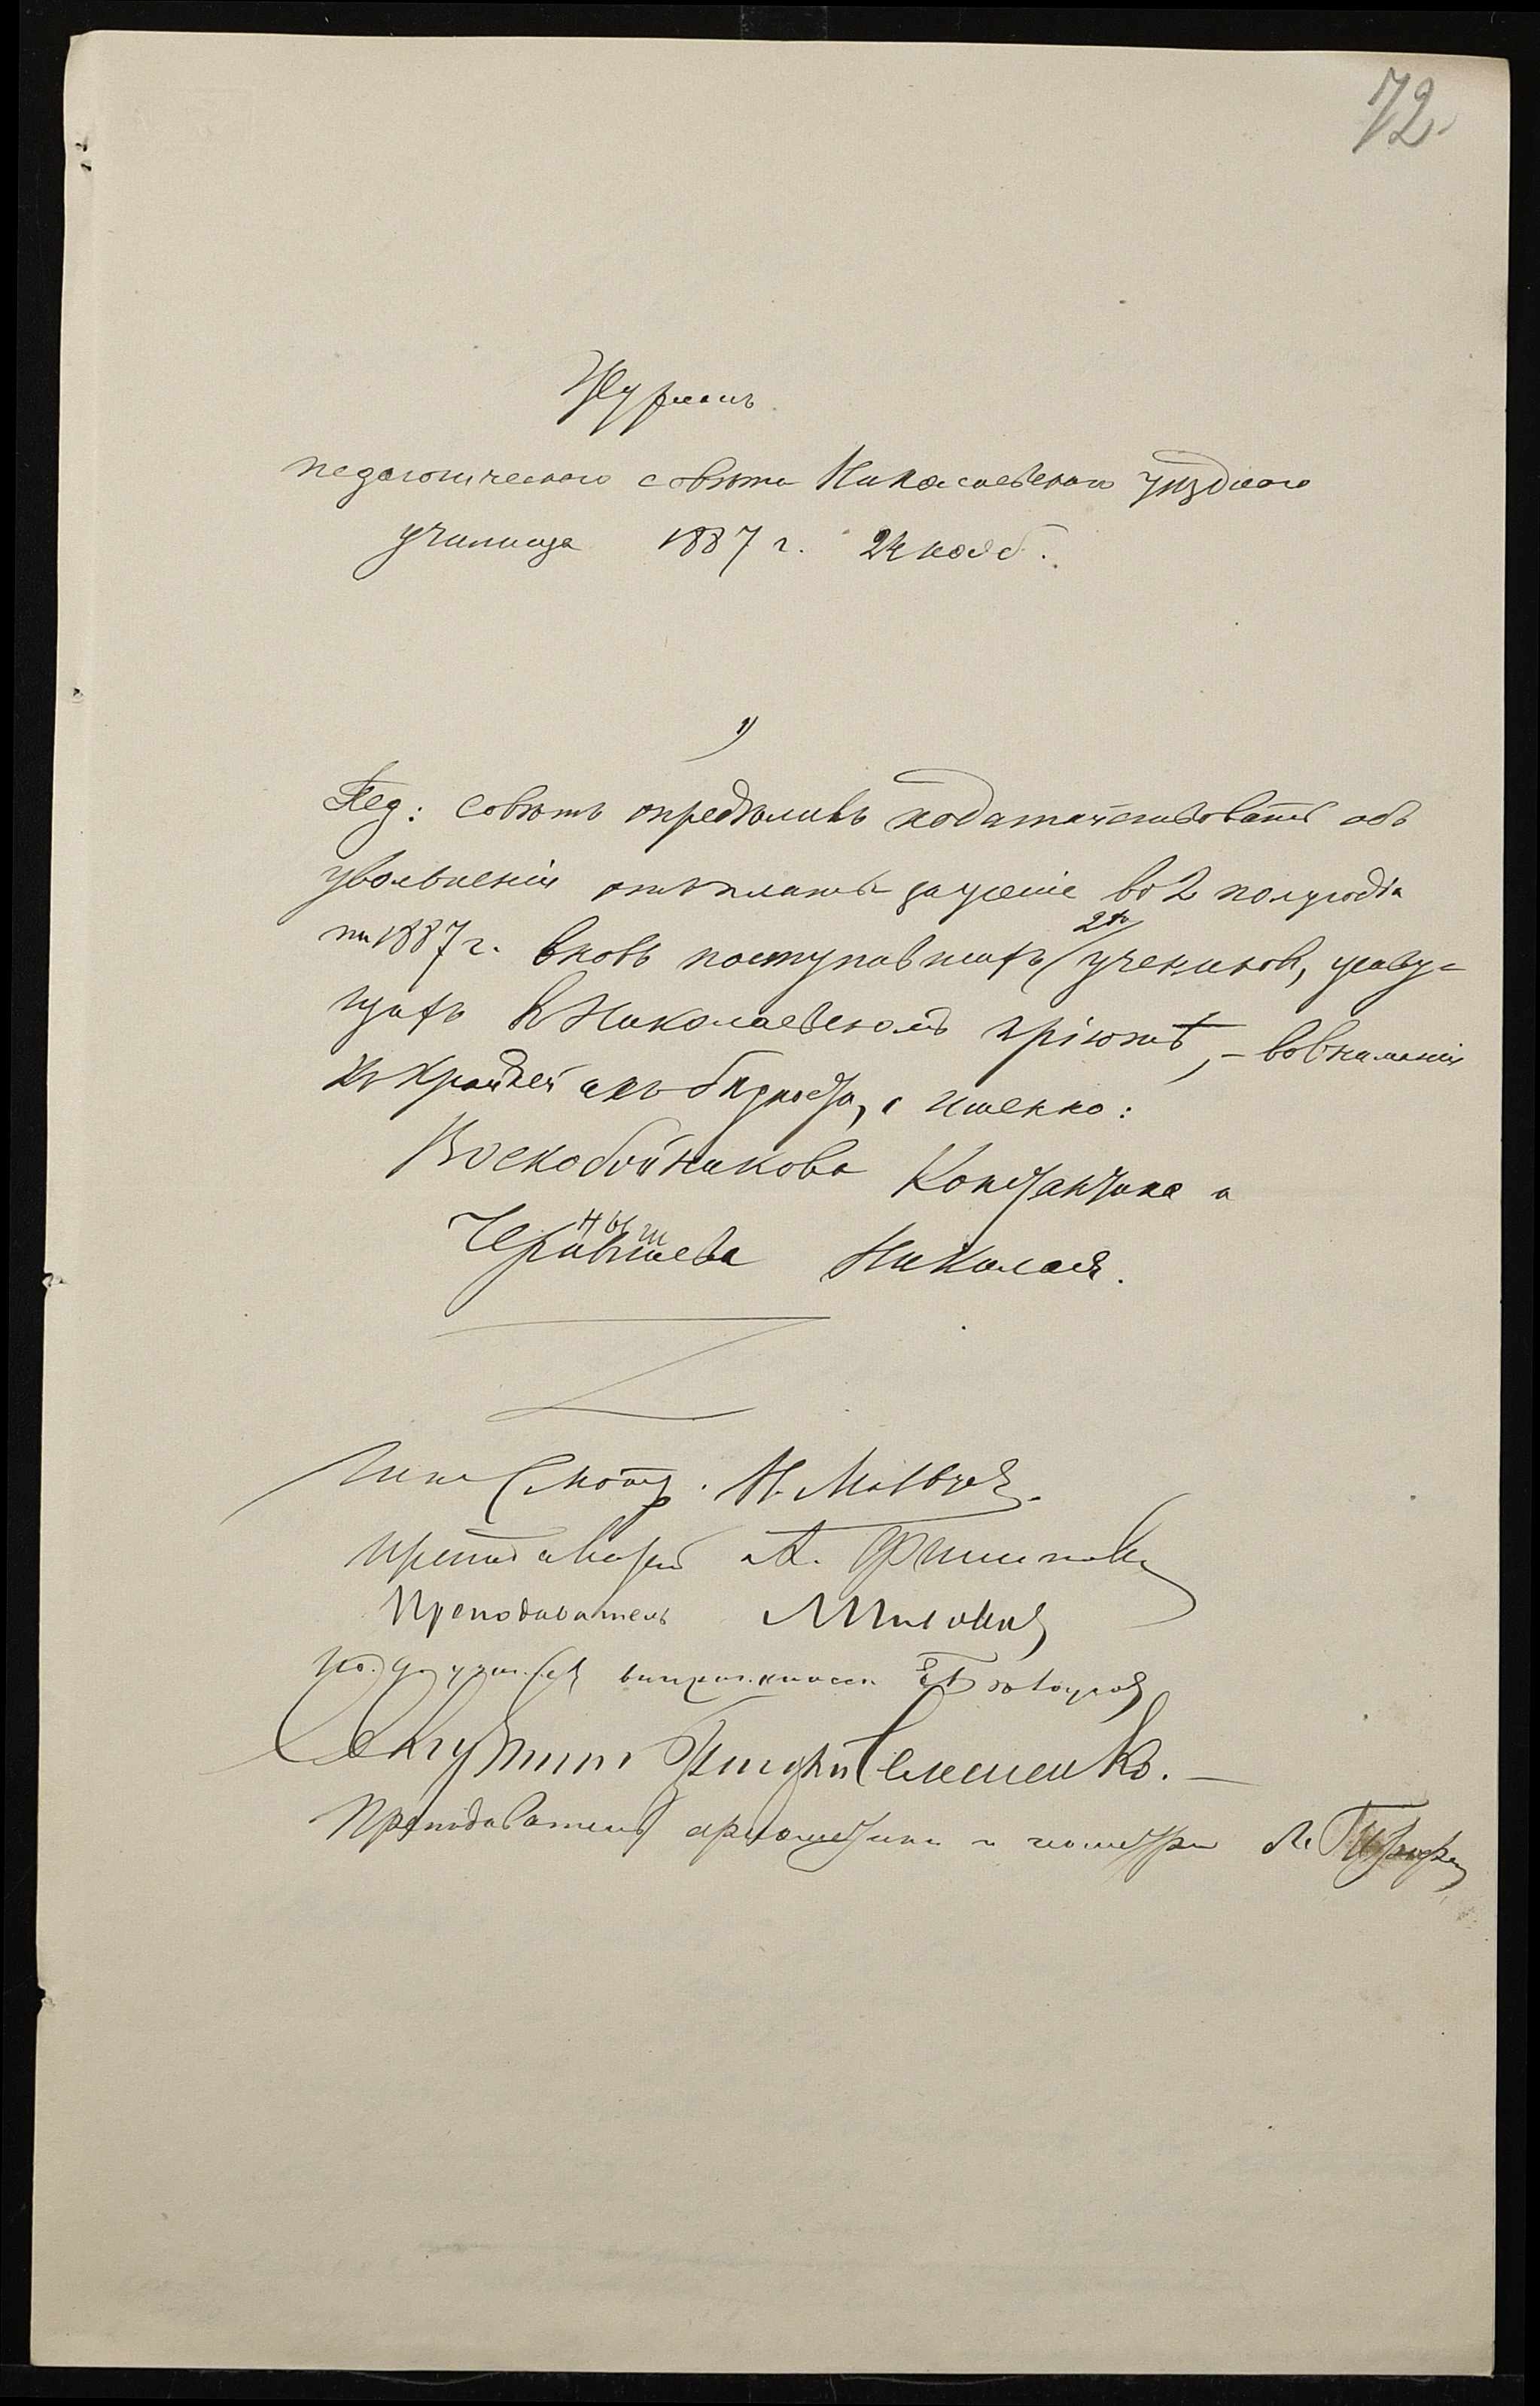 72.
Журналъ
педагогическаго совѣта Николаевскаго уѣзднаго
училища 1887 г. 24 нояб.
1)
Пед: совѣтъ опредѣлилъ ходатайствовать объ
увольненіи отъ платы за ученіе во 2 полугодіи
1887 г. вновь поступившихъ 2хъ учениковъ, живу-
щихъ въ Николаевскомъ пріютѣ, – во вниманіи
къ крайней ихъ бѣдности, а именно:
Воскобойникова Константина и
Чернышева Николая.
Смотр. Н.
Преподаватель А.
Преподаватель
класса
Семененко. —
Преподаватель ариѳметики и геометріи